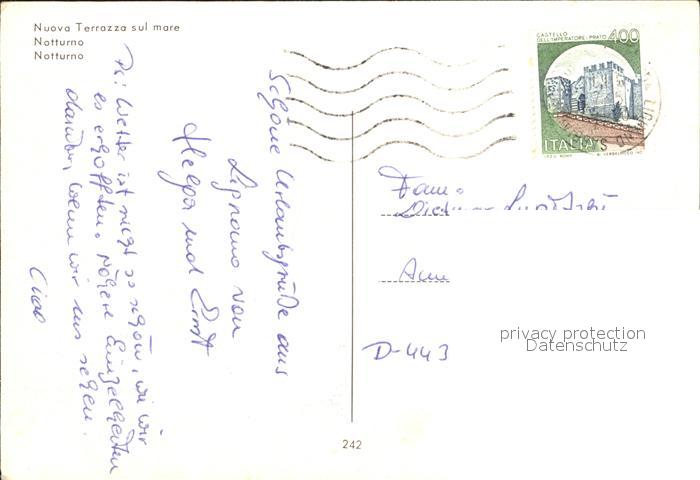 Nuova Terrazza sul mare
Notturno
Notturno
Schöne Urlaubsgrüße aus
Lignano von
Helga und Ernst
Ps: Wetter ist nicht so schön, wie wir
es erhofften. Nähere Einzelheiten
darüber, wenn wir uns sehen.
Ciao
CASTELLO
DELL'IMPERATORE-PRATO 400
ITALIA
Fam.
D-443
privacy protection
Datenschutz
242